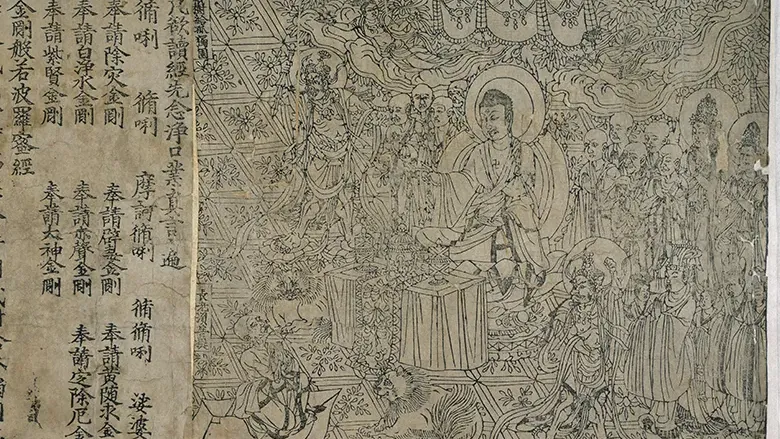 祇樹給孤獨園
長老須菩提
凡欲讀經先念淨口業真言一遍
脩唎 脩唎 摩訶脩唎 脩脩唎 娑婆
奉請除灾金剛 奉請辟毒金剛 奉請黄隨求金
奉請白淨水金剛 奉請赤聲金剛 奉請定除厄金
奉請紫賢金剛 奉請大神金剛
金剛般若波羅蜜經